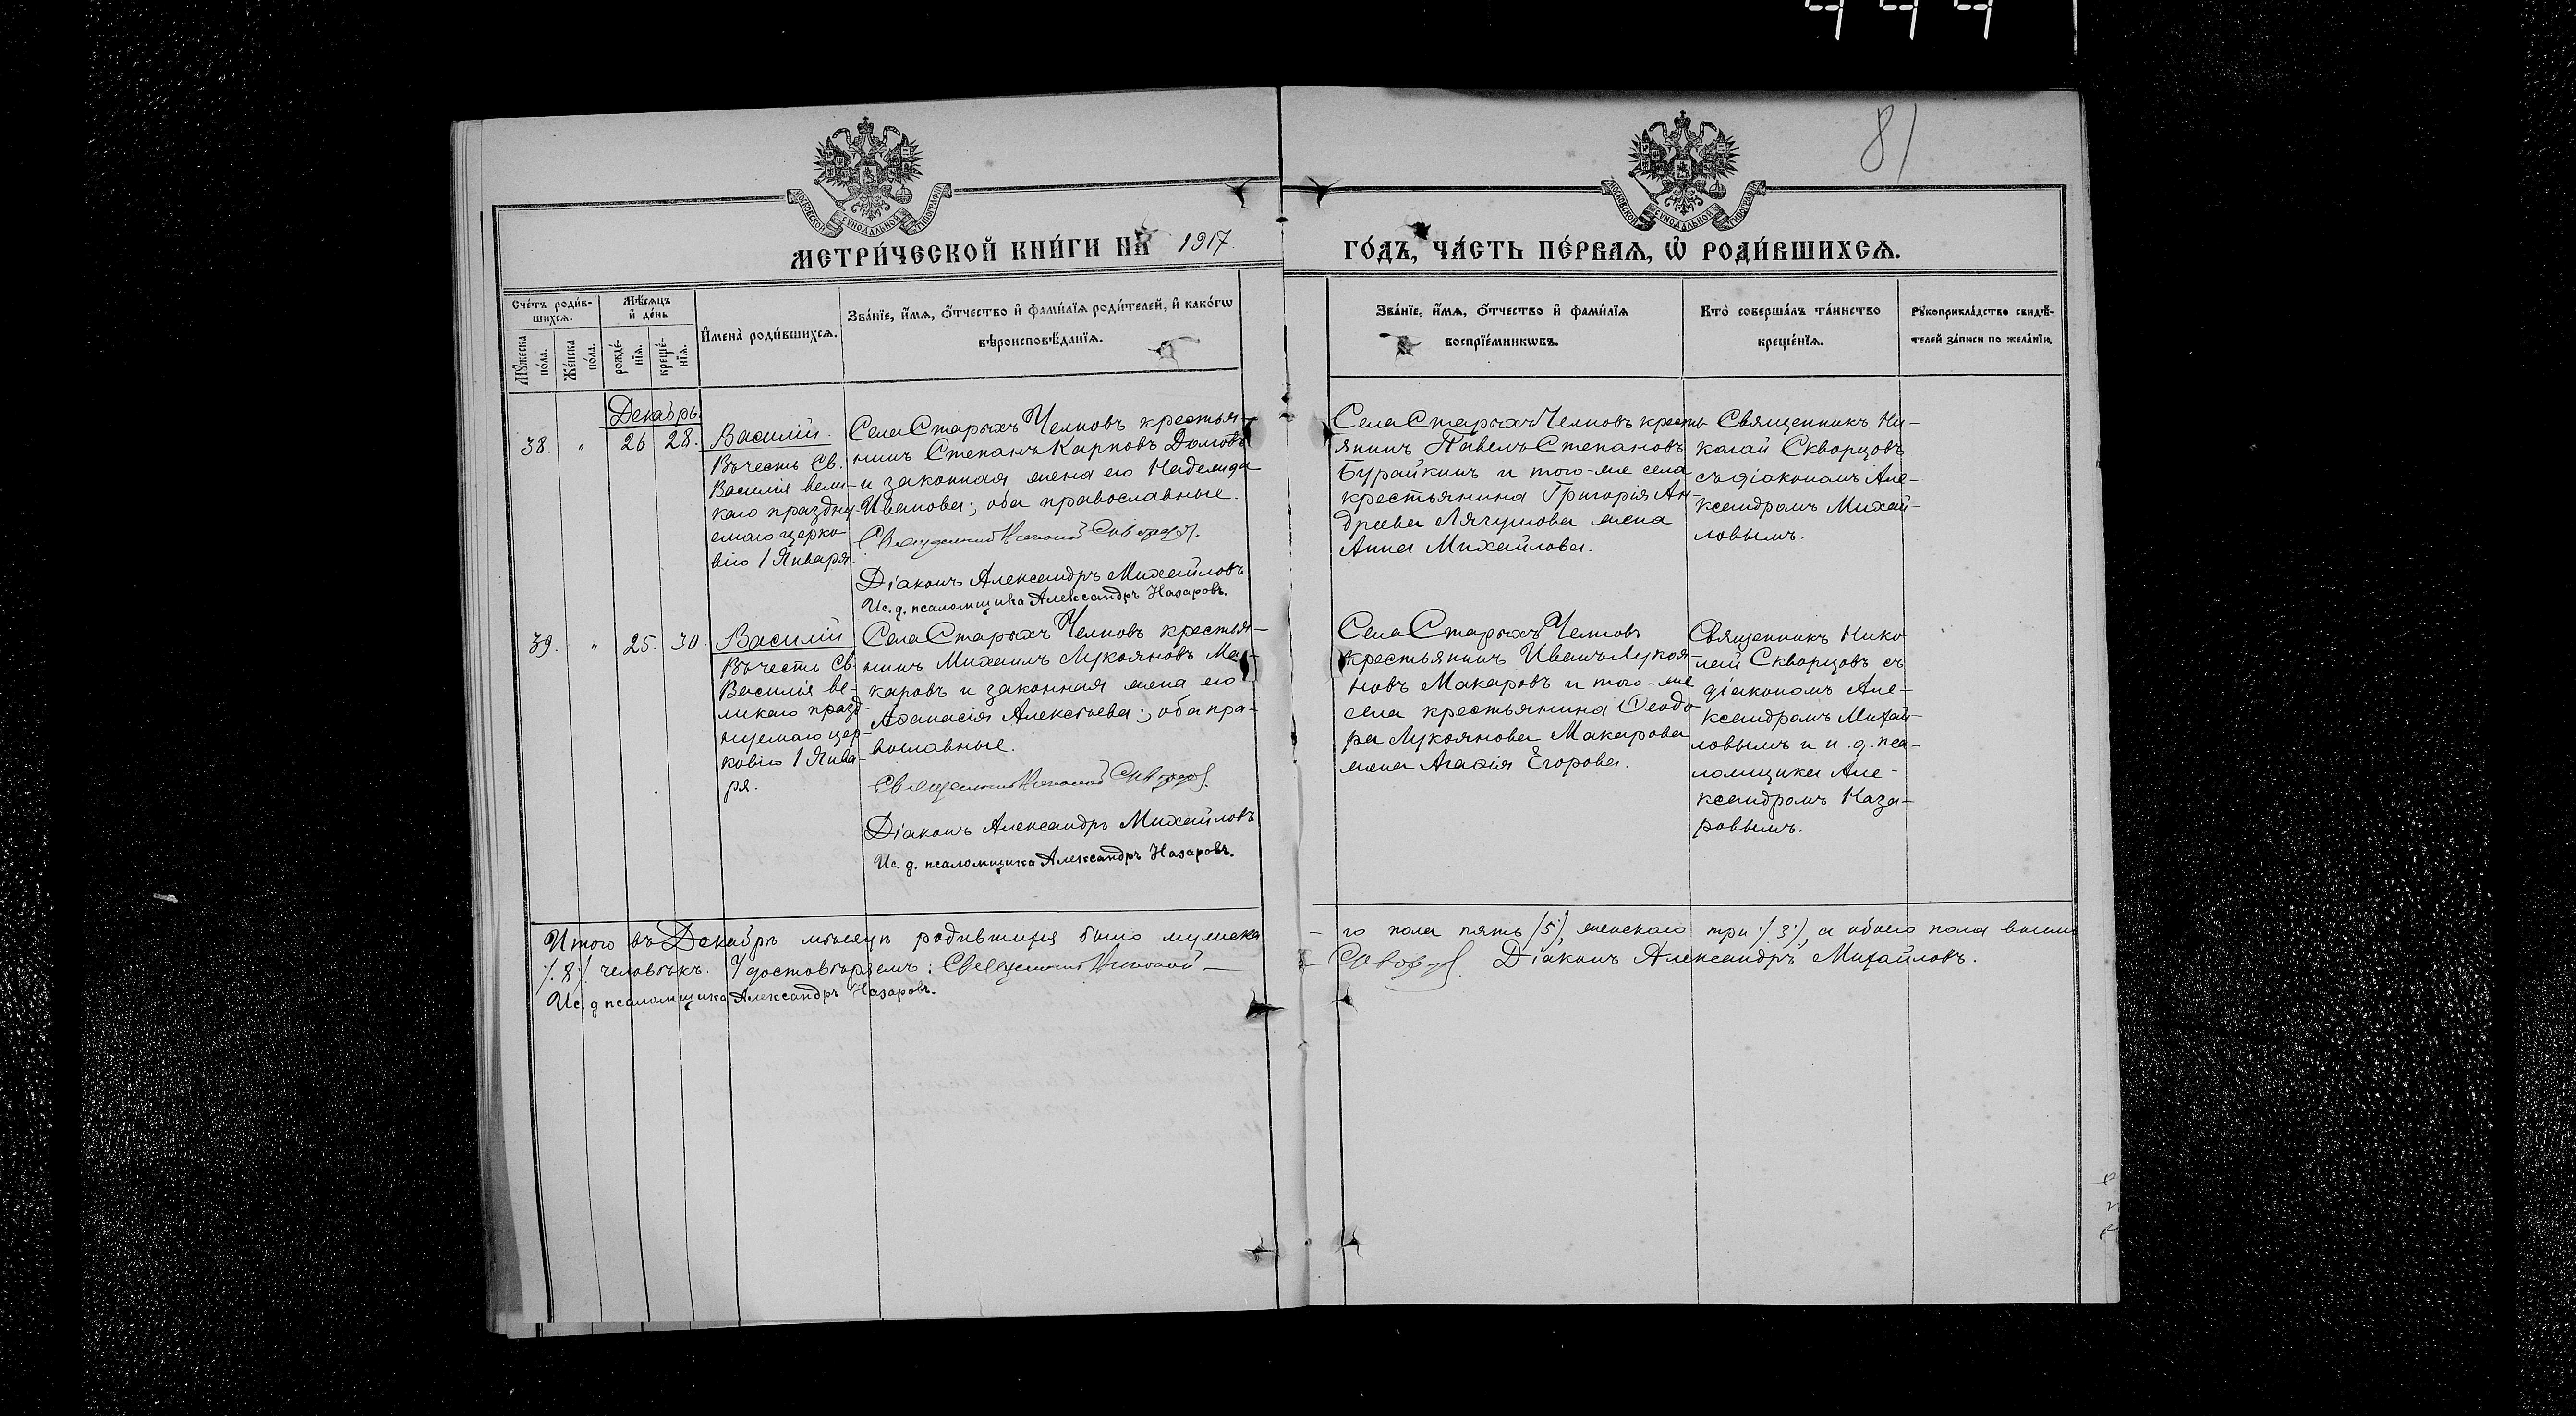 444
81
МОСКОВСКОЙ СУНОДАЛЬНОЙ ТИПОГРАФІИ
МОСКОВСКОЙ СУНОДАЛЬНОЙ ТИПОГРАФІИ
МЕТРИ́ЧЕСКОЙ КНИ́ГИ НА 1917.
ГО́ДЪ, ЧА́СТЬ ПЕ́РВАѦ, Ѽ РОДИ́ВШИХСѦ.
Сче́тъ роди́в-
шихсѧ.
Мѣ́сѧцъ
и҆ де́нь
Мꙋ́жеска
по́ла.
Же́нска
по́ла.
рожде́-
нїѧ.
креще́-
нїѧ.
И҆мена̀ роди́вшихсѧ.
Зва́нїе, и҆́мѧ, ѻ҆́тчество и҆ фами́лїѧ роди́телей, и҆ како́гѡ
вѣроисповѣ́данїѧ.
Зва́нїе, и҆́мѧ, ѻ҆́тчество и҆ фами́лїѧ
воспрїе́мникѡвъ.
Кто̀ соверша́лъ та́инство
креще́нїѧ.
Рꙋкоприкла́дство свидѣ́-
телей за́писи по жела́нїю.
Декабрь.
38. " 26 28. Василій.
Въ честь Св.
Василія вели-
каго праздну-
емаго церко-
вію 1 Января.
Села Старыхъ Челновъ крестья-
нинъ Степанъ Карповъ Домовъ
и законная жена его Надежда
Иванова; оба православные.
Священникъ Николай Скворцовъ.
Діаконъ Александръ Михайловъ
Ис. д. псаломщика Александръ Назаровъ.
Села Старыхъ Челновъ кресть-
янинъ Павелъ Степановъ
Бурайкинъ и того-же села
крестьянина Григорія Ан-
дреева Лячушова жена
Анна Михайлова.
Священникъ Ни-
колай Скворцовъ
съ діакономъ Але-
ксандромъ Михай-
ловымъ.
39. " 25. 30. Василій
Въ честь Св.
Василія ве-
ликаго празд-
нуемаго цер-
ковію 1 Янва-
ря.
Села Старыхъ Челновъ крестья-
нинъ Михаилъ Лукояновъ Ма-
каровъ и законная жена его
Аѳанасія Алексѣева; оба пра-
вославные.
Священникъ Николай Скворцовъ.
Діаконъ Александръ Михайловъ
Ис. д. псаломщика Александръ Назаровъ.
Села Старыхъ Челновъ
крестьянинъ Иванъ Лукоя-
новъ Макаровъ и того-же
села крестьянина Ѳеодо
ра Лукоянова Макарова
жена Агаѳія Егорова.
Священникъ Нико
лай Скворцовъ съ
діакономъ Але-
ксандромъ Михай-
ловымъ и и. д. пса-
ломщика Але-
ксандромъ Наза-
ровымъ.
Итого въ Декабрѣ мѣсяцѣ родившихся было мужеска
- го пола пять /5/, женскаго три /:3:/, а обоего пола восемь
/:8:/ человѣкъ. Удостовѣряемъ: Священникъ Николай -
- Скворцовъ. Діаконъ Александръ Михайловъ.
Ис. д псаломщика Александръ Назаровъ.